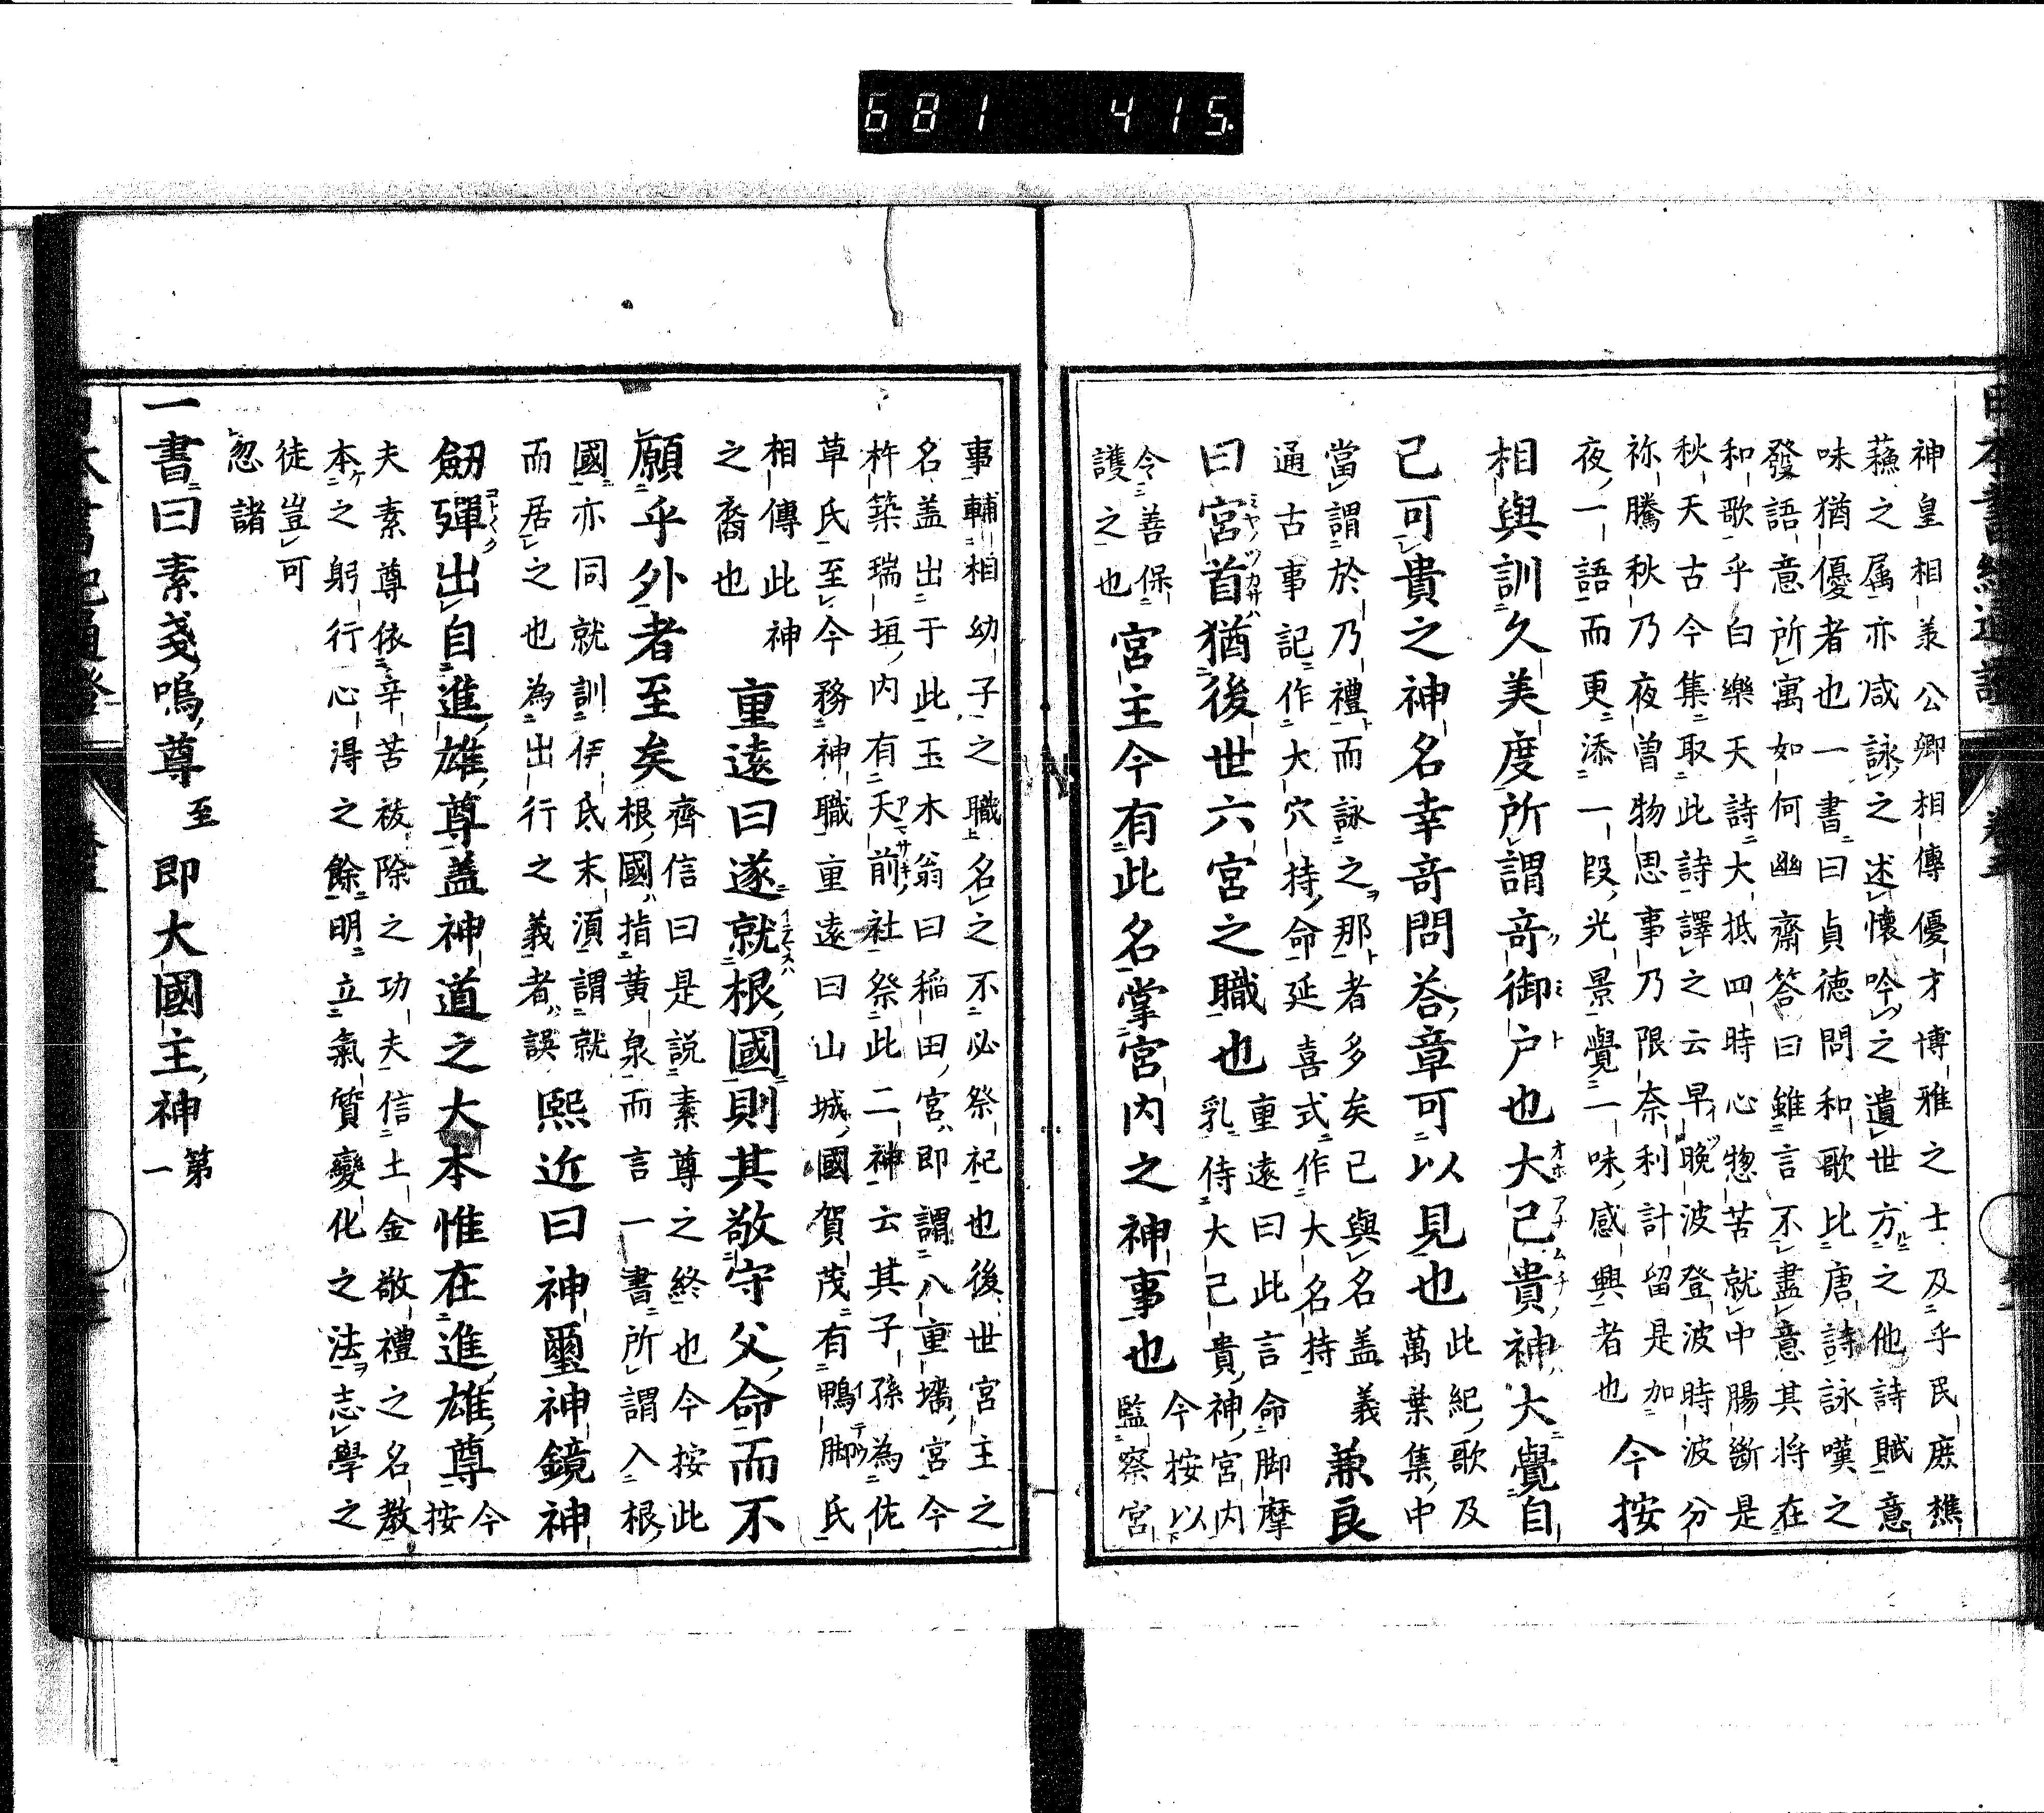 681 415.
神皇相羙公卿相傳優才博雅之士及乎民庶樵
蘓之属亦咸詠之述懷吟之遺世方之他詩賦意
味猶優者也一書曰貞徳問和歌比唐詩詠嘆之
發語意所寓如何幽齋答曰雖言不盡意其将在
和歌乎白樂天詩大抵四時心惣苦就中腸斷是
秋天古今集取此詩譯之云早晩波登波時波分
祢騰秋乃夜曽物思事乃限奈利計留是加
夜一語而更添一段光景覺一味感興者也 今按
相與訓久美度所謂竒御戸也大己貴神大覺自
己可貴之神名幸竒問荅章可以見也 此紀歌及
萬葉集中
當謂於乃禮而詠之那者多矣己與名盖義 兼良
通古事記作大穴持命延喜式作大名持
曰宮首猶後世六宮之職也 重遠曰此言命脚摩
乳侍大己貴神宮内
宮主今有此名掌宮内之神事也 今按以
監察宮
令善保
護之也
事輔相幼子之職名之不必祭祀也後世宮主之
名盖出于此玉木翁曰稲田宮即謂八重墻宮今
杵築瑞垣内有天前社祭此二神云其子孫為佐
草氏至今務神職重遠曰山城國賀茂有鴨脚氏
相傳此神
之裔也 重遠曰遂就根國則其敬守父命而不
願乎外者至矣 齊信曰是説素尊之終也今按此
根國指黄泉而言一書所謂入根
國亦同就訓伊氐末湏謂就
而居之也為出行之義者誤 熙近曰神璽神鏡神
劒殫出自進雄尊盖神道之大本惟在進雄尊 今
按
夫素尊依辛苦祓除之功夫信土金敬禮之名教
本之躬行心淂之餘明立氣質變化之法志學之
徒豈可
忽諸
一書曰素戔嗚尊 至 即大國主神 第
一